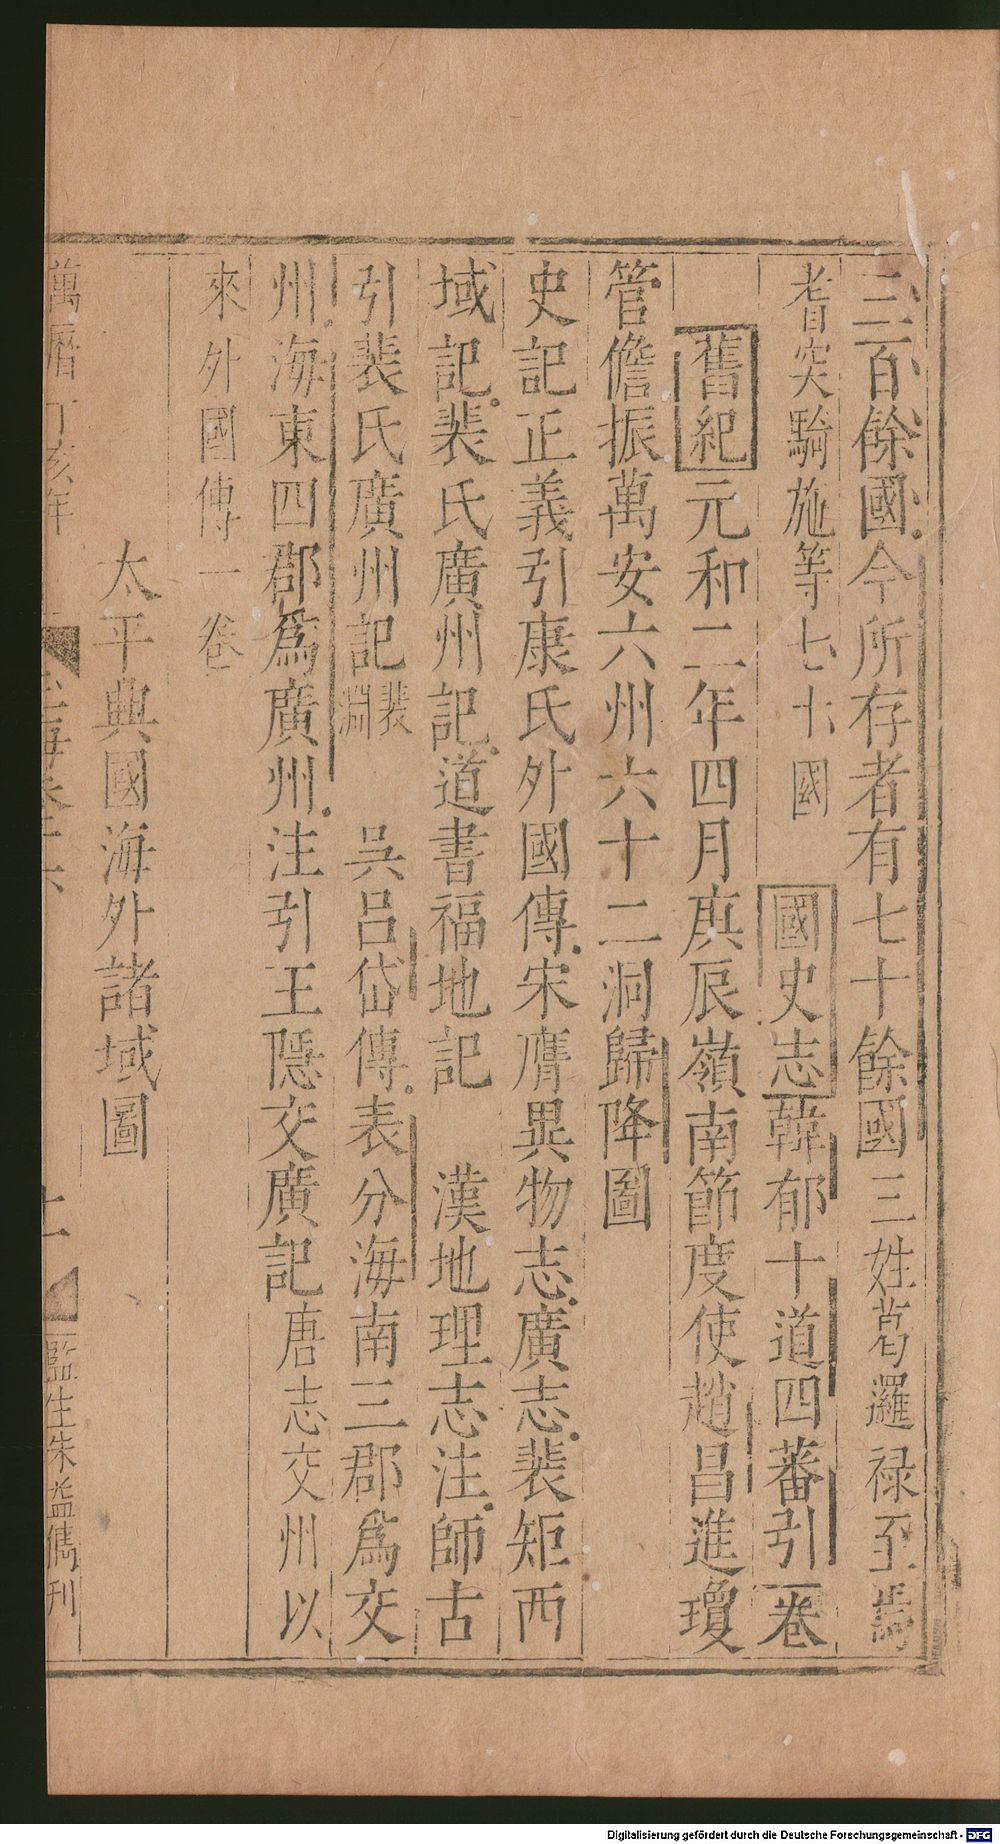 三百餘國今所存者有七十餘國三姓葛邏祿至
耆突騎施等七十國 國史志韓郁十道四蕃引一卷
舊紀元和二年四月庚辰嶺南節度使趙昌進瓊
管儋振萬安六州六十二洞歸降圖
史記正義引康氏外國傳宋膺異物志廣志裴矩西
域記裴氏廣州記道書福地記 漢地理志注師古
引裴氏廣州記裴淵 吳呂岱傳表分海南三郡爲交
州海東四郡爲廣州注引王隱交廣記唐志交州以
來外國傳一卷
太平興國海外諸域圖
萬曆丁亥年
十一
監生朱益儁刊
Digitalisierung gefördert durch die Deutsche Forschungsgemeinschaft - DFG